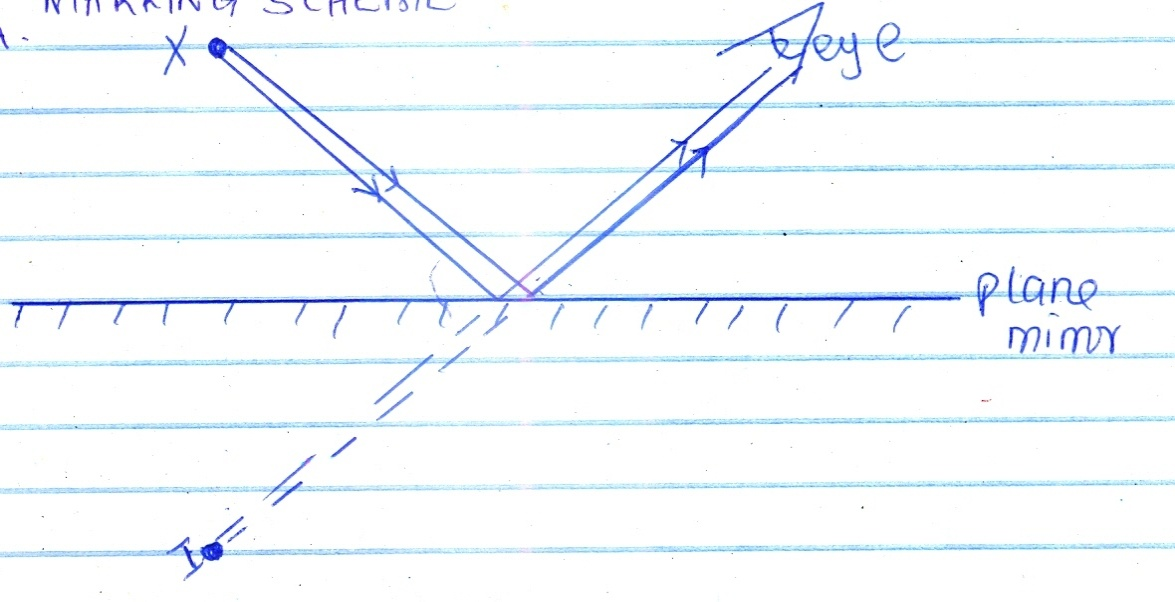 MARKING SCHEME
1.
X
eye
plane
mirror
I